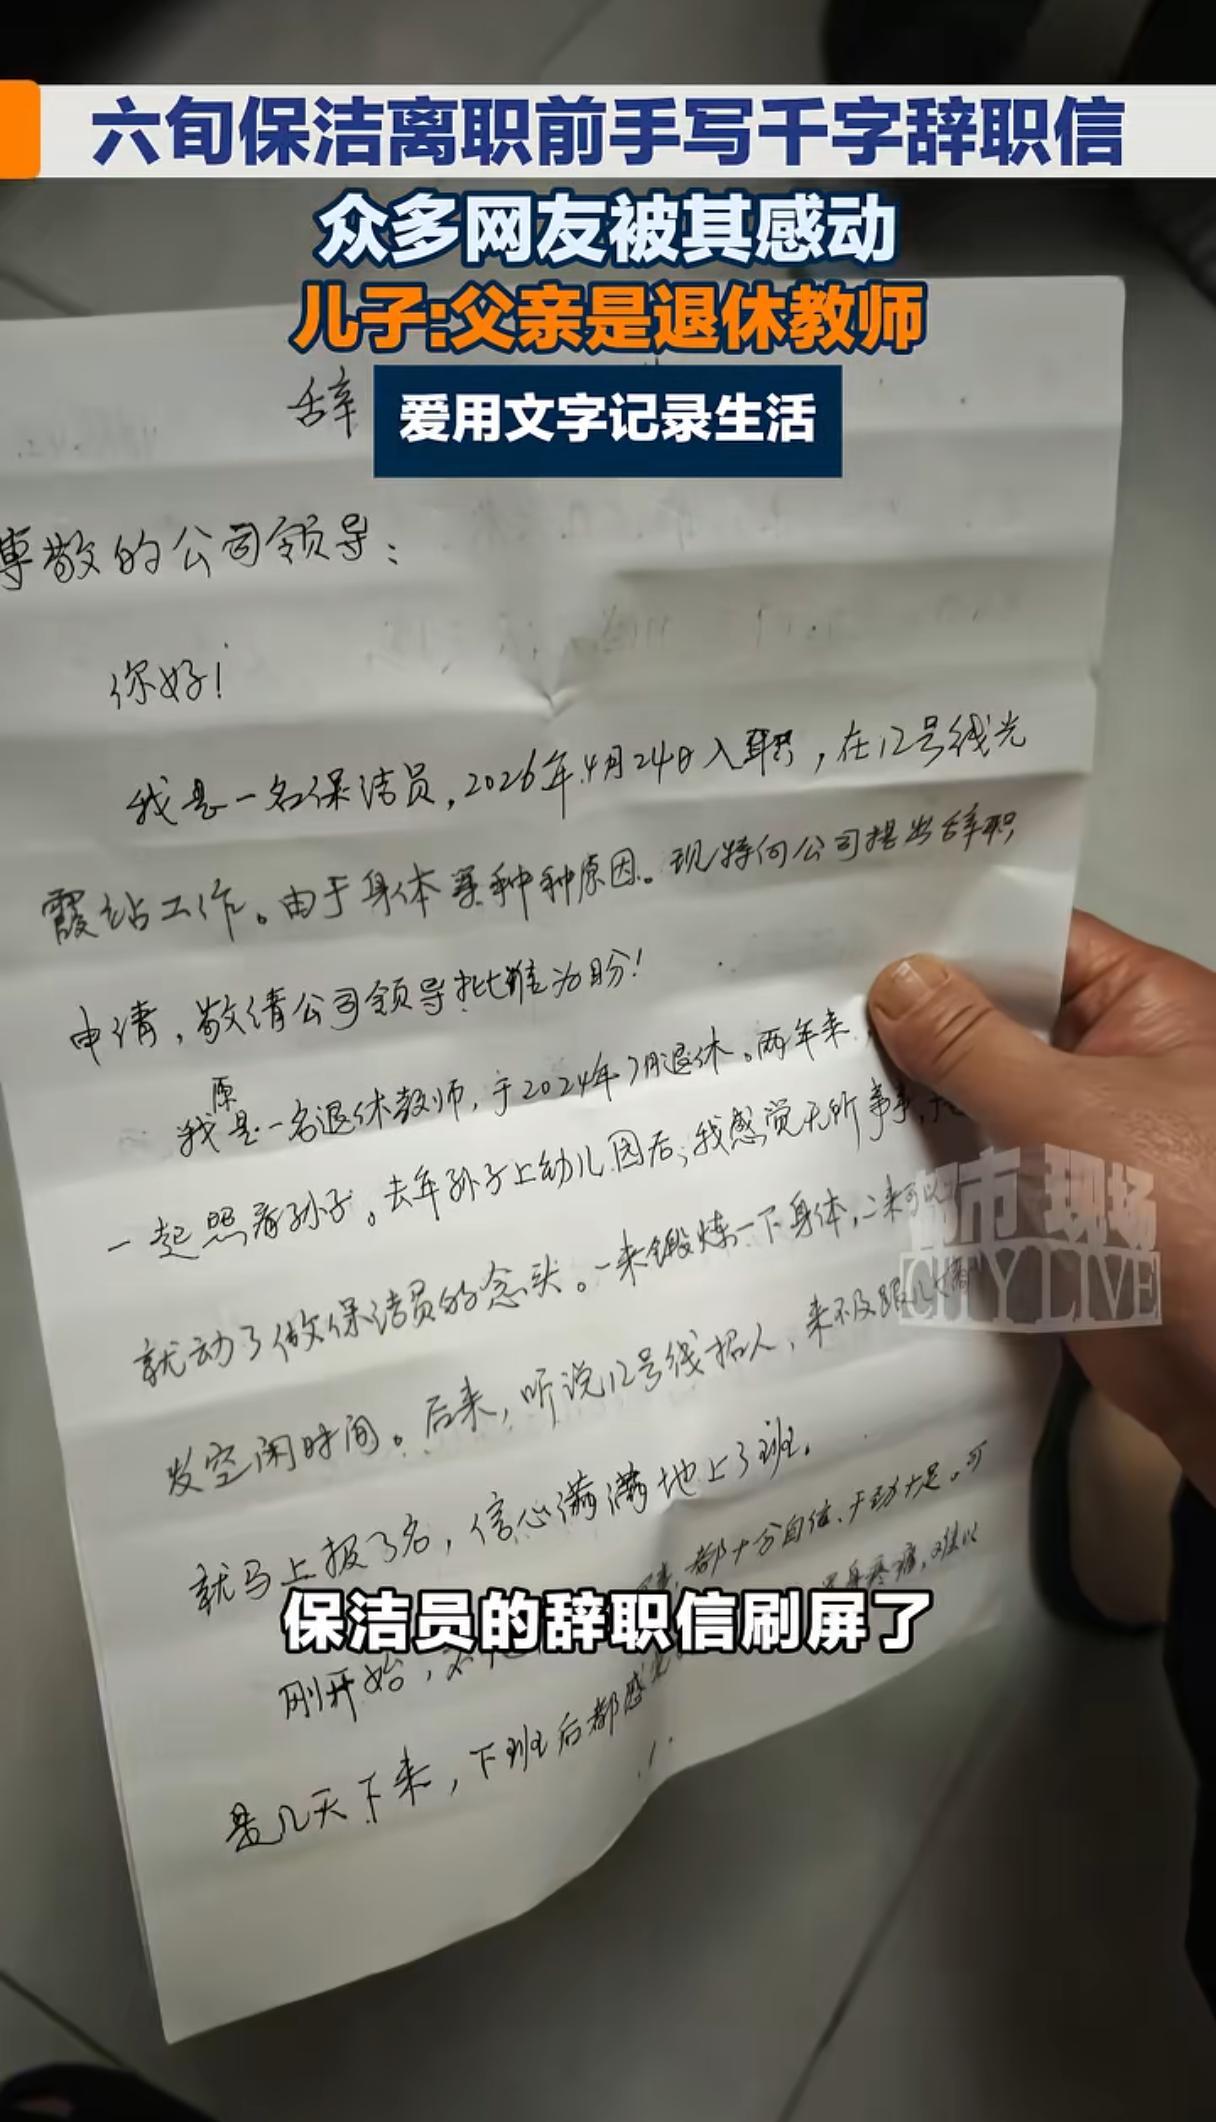 六旬保洁离职前手写千字辞职信
众多网友被其感动
儿子:父亲是退休教师
爱用文字记录生活
辞
尊敬的公司领导：
你好！
我是一名保洁员，2026年4月24日入职，在12号线光
霞站工作。由于身体等种种原因。现特向公司提出辞职
申请，敬请公司领导批准为盼！
我原是一名退休教师，于2024年7月退休。两年来
一起照看孙子。去年孙子上幼儿园后，我感觉无所事事，
就动了做保洁员的念头。一来锻炼一下身体，二来可以
发空闲时间。后来，听说12号线招人，来不及跟儿
就马上报了名，信心满满地上了班。
刚开始，都十分自信、干劲十足。可
是几天下来，下班后都感觉 身疼痛，难以
保洁员的辞职信刷屏了
都市现场
CITY LIVE